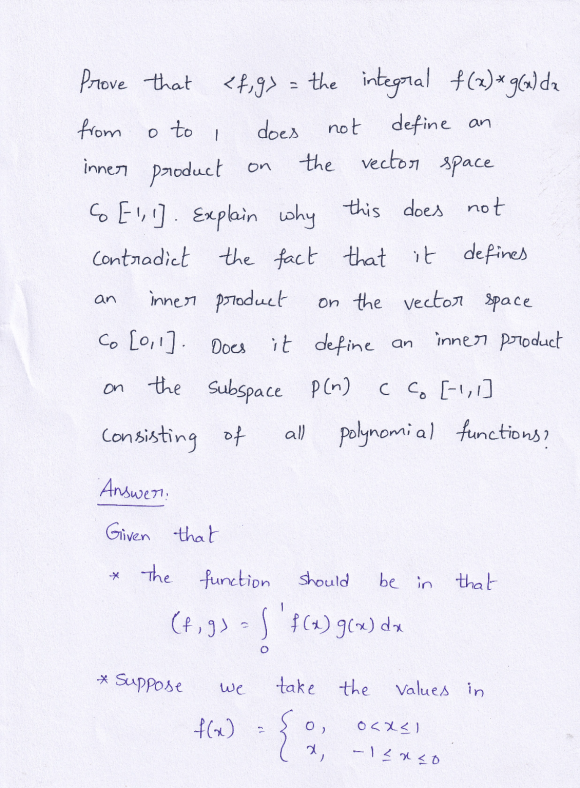 Prove that <f,g> = the integral f(x)*g(x)dx
from 0 to 1 does not define an
inner product on the vector space
C₀ [-1,1]. Explain why this does not
Contradict the fact that it defines
an inner product on the vector space
C₀ [0,1]. Does it define an inner product
on the subspace P(n) ⊂ C₀ [-1,1]
Consisting of all polynomial functions?
Answer:
Given that
* The function should be in that
(f,g> = ∫₀¹ f(x) g(x) dx
* Suppose we take the values in
f(x) = { 0, 0<x≤1
x, -1≤x≤0